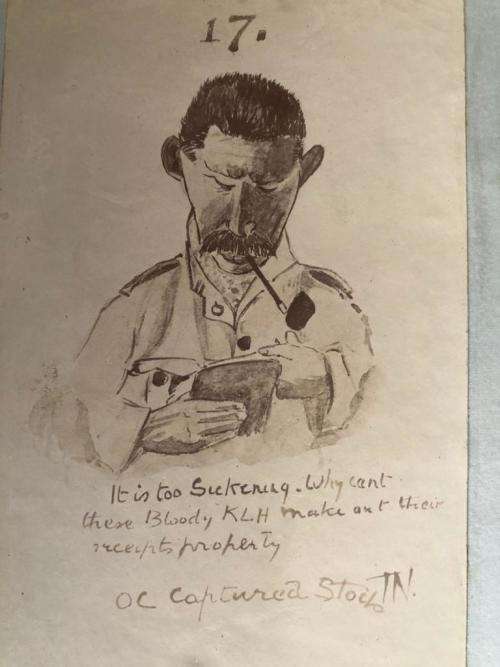 17.
It is too Sickening. Why cant
these Bloody KLH make out their
receipts property
OC Captured Stock